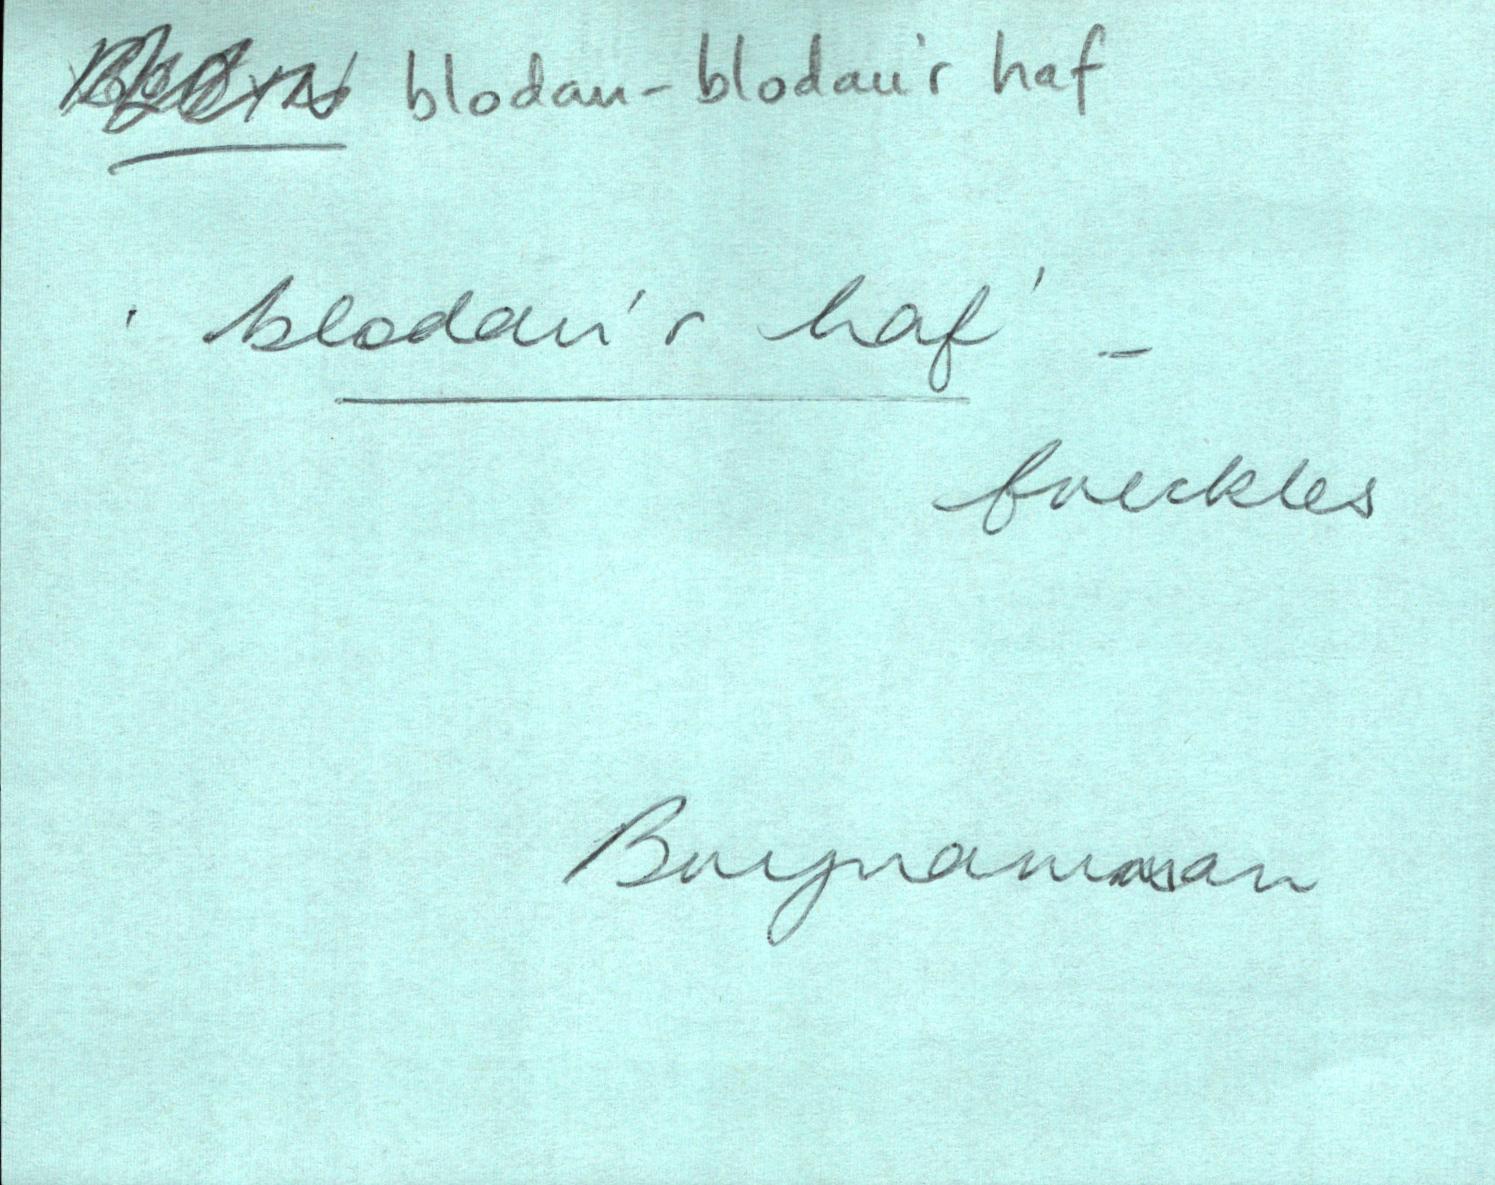 blodau - blodau'r haf
'blodau'r haf' -
freckles
Brynamman